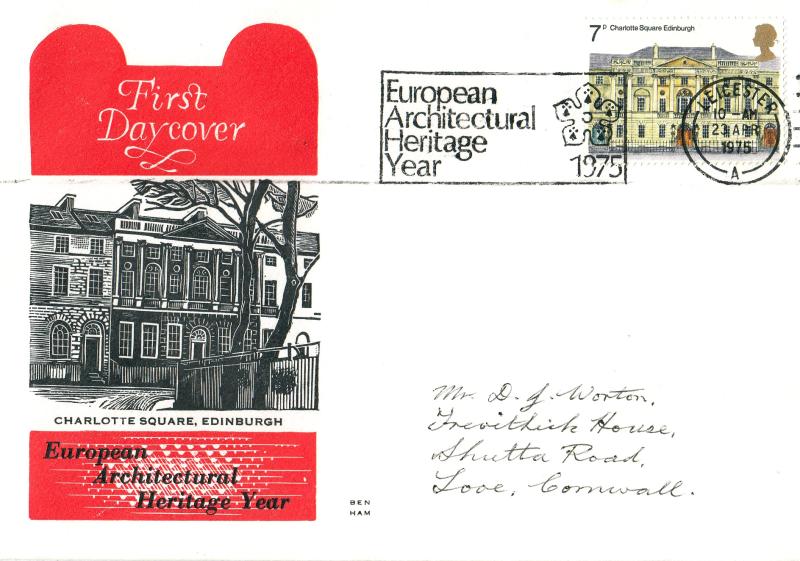 First
Daycover
European
Architectural
Heritage
Year
1975
7P Charlotte Square Edinburgh
LEICESTER
10 - AM
23 APR
1975
A
CHARLOTTE SQUARE, EDINBURGH
European
Architectural
Heritage Year
BEN
HAM
Mr. D. J. Worton,
Trevithick House,
Shutta Road,
Looe, Cornwall.